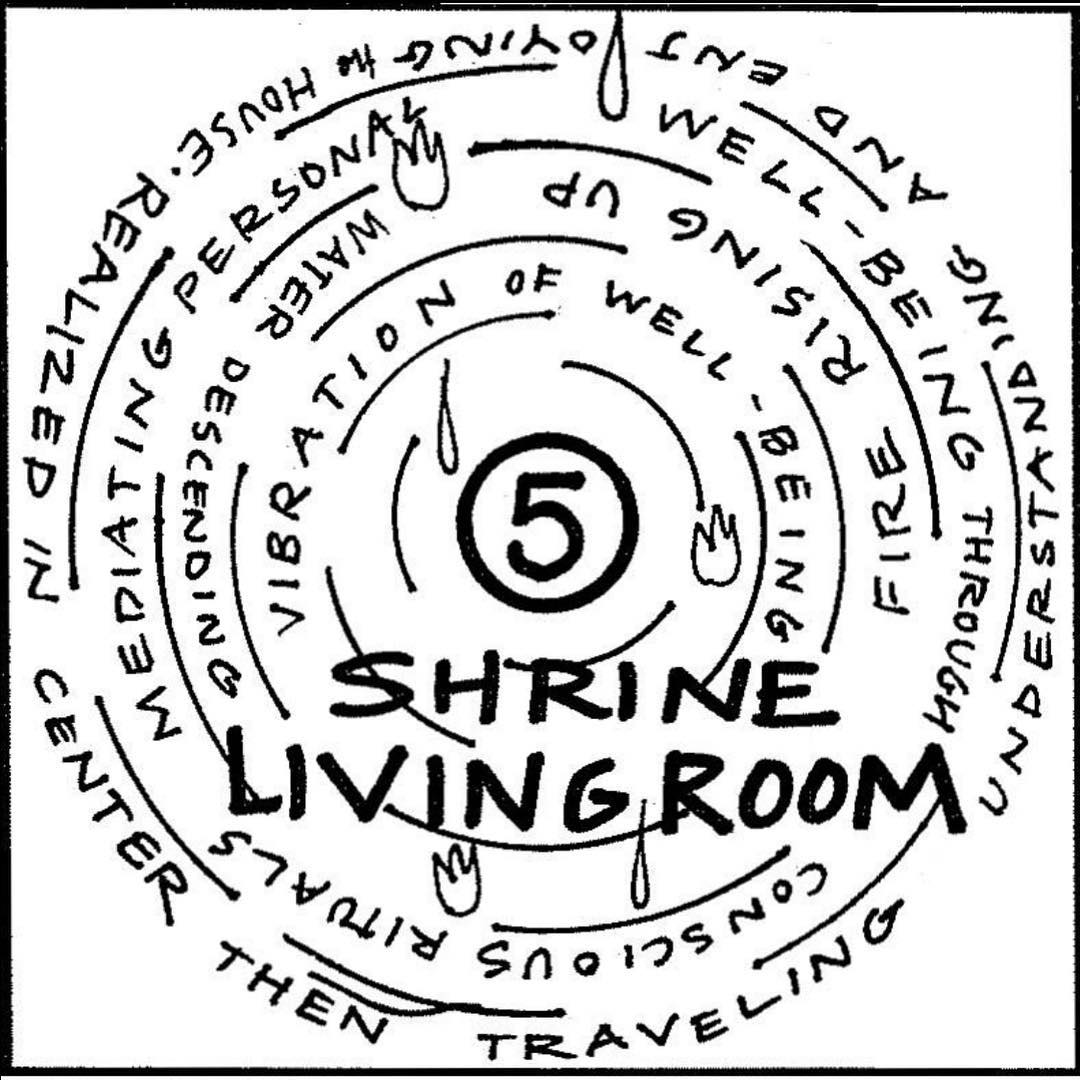 5
SHRINE
LIVINGROOM
VIBRATION OF WELL-BEING
WATER DESCENDING
FIRE RISING UP
MEDIATING PERSONAL WELL-BEING THROUGH CONSCIOUS RITUALS
REALIZED IN CENTER THEN TRAVELING UNDERSTANDING AND ENJOYING the HOUSE.